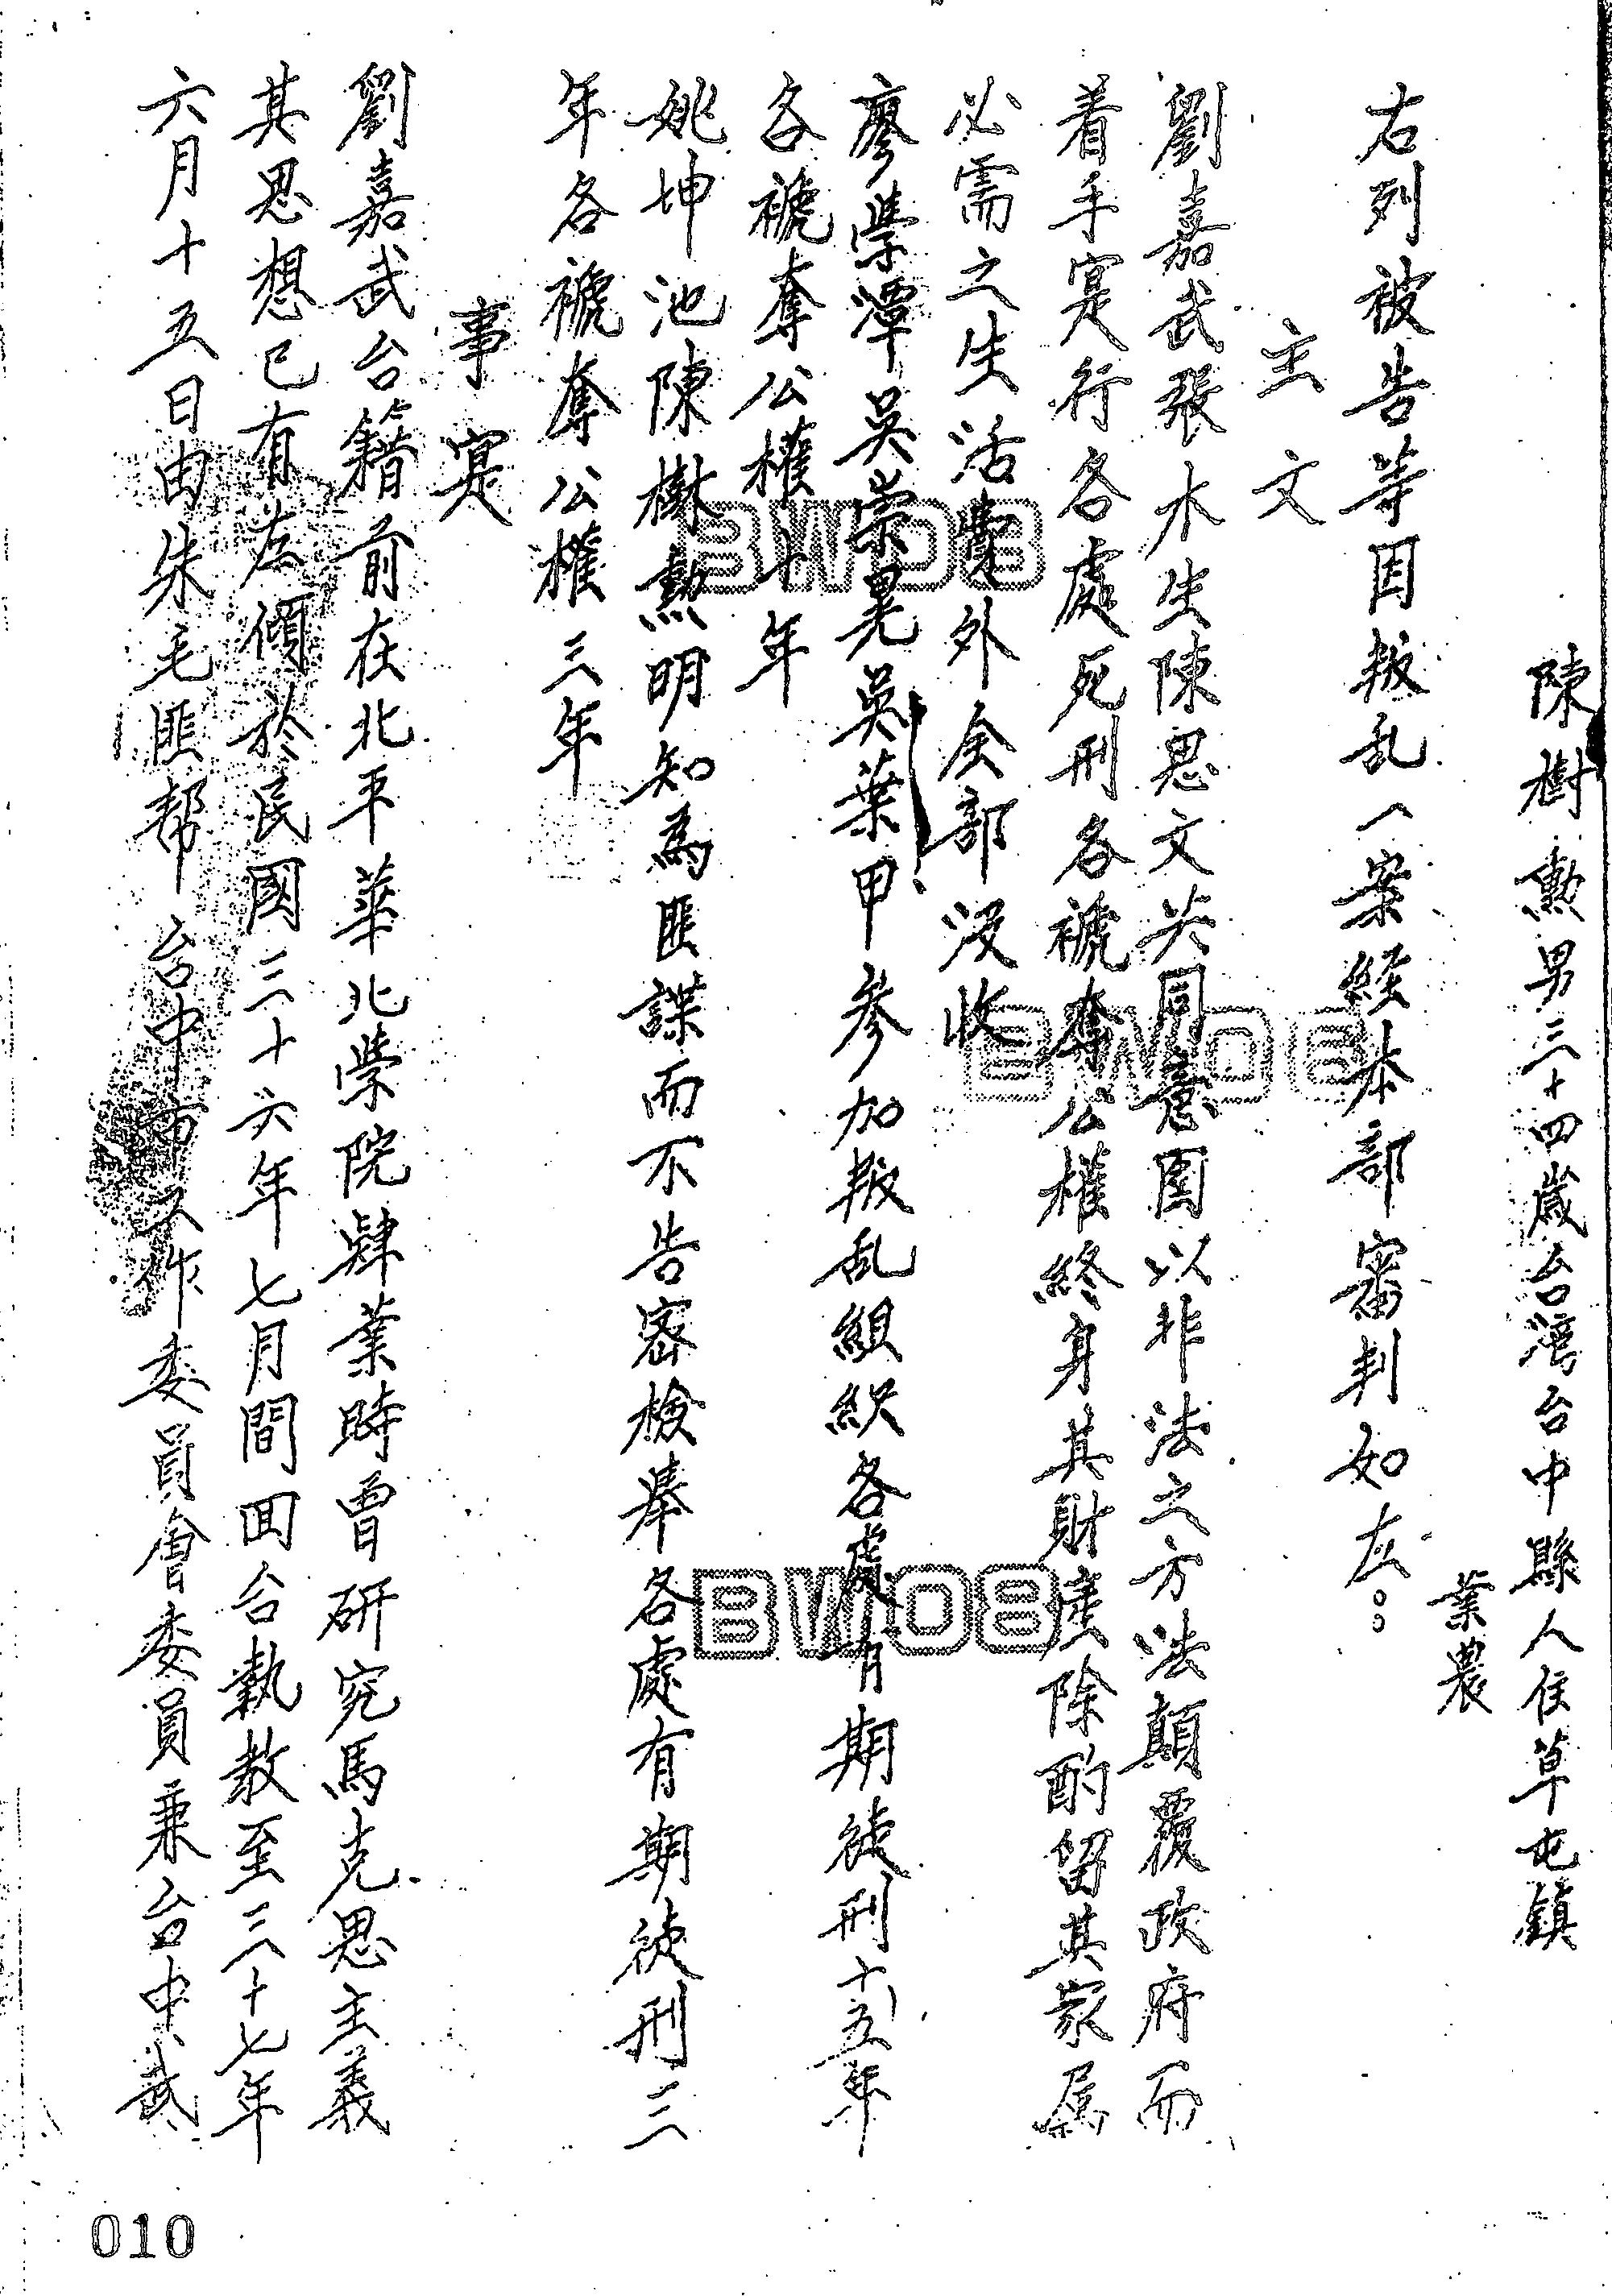 陳樹勲男三十四歲台灣台中縣人住草屯鎮
業農
右列被告等因叛乱一案経本部審判如左：
主文
劉嘉武張水生陳思文共同意图以非法之方法顛覆政府而
着手寔行各處死刑各褫奪公權終身其財產除酌留其家属
必需之生活費外全部没收
廖學潭吳崇晃吳葉甲參加叛乱組织各處有期徒刑十五年
各褫奪公權十年
姚坤池陳樹勲明知為匪諜而不告密檢舉各處有期徒刑三
年各褫奪公權三年
事寔
劉嘉武台籍前在北平華北學院肄業時曾研究馬克思主義
其思想已有左傾於民國三十六年七月間回台執教至三十七年
六月十五日由朱毛匪帮台中市工作委員會委員兼台中武
BW08
BW08
BW08
010